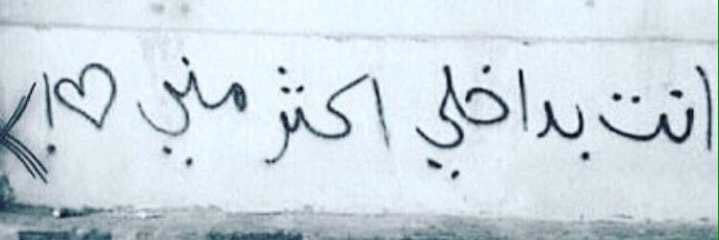 انت بداخلي اكثر مني ♡!